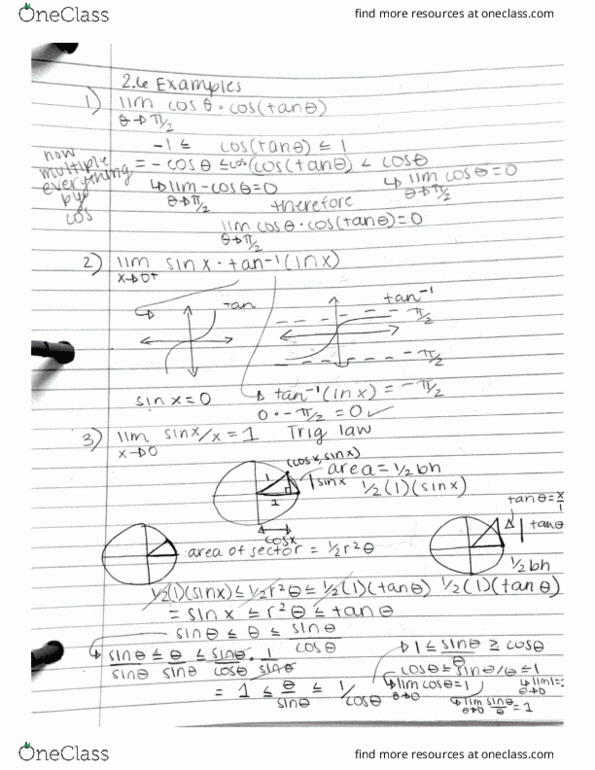 OneClass
find more resources at oneclass.com
2.6 Examples
1) lim cosθ · cos(tanθ)
θ→π/2
-1 ≤ cos(tanθ) ≤ 1
now multiple everything by cos
= -cosθ ≤ cos(cos(tanθ) < cosθ
↳ lim -cosθ = 0
θ→π/2
↳ lim cosθ = 0
θ→π/2
therefore
lim cosθ · cos(tanθ) = 0
θ→π/2
2) lim sinx · tan⁻¹(lnx)
x→0+
tan
tan⁻¹
π/2
-π/2
sinx = 0
tan⁻¹(lnx) = -π/2
0 · -π/2 = 0 ✓
3) lim sinx/x = 1 Trig law
x→0
(cosx, sinx)
1
area = ½bh
sinx
½(1)(sinx)
1
cosx
tanθ = x/1
tanθ
area of sector = ½r²θ
½bh
½(1)(sinx) ≤ ½r²θ ≤ ½(1)(tanθ)
½(1)(tanθ)
= sinx ≤ r²θ ≤ tanθ
sinθ ≤ θ ≤ sinθ/cosθ
↳ sinθ/sinθ ≤ θ/sinθ ≤ sinθ/cosθ · 1/sinθ
= 1 ≤ θ/sinθ ≤ 1/cosθ
1 ≤ sinθ/θ ≥ cosθ
cosθ ≤ sinθ/θ ≤ 1
↳ lim cosθ = 1
θ→0
↳ lim 1 =
θ→0
↳ lim sinθ/θ = 1
θ→0
OneClass
find more resources at oneclass.com